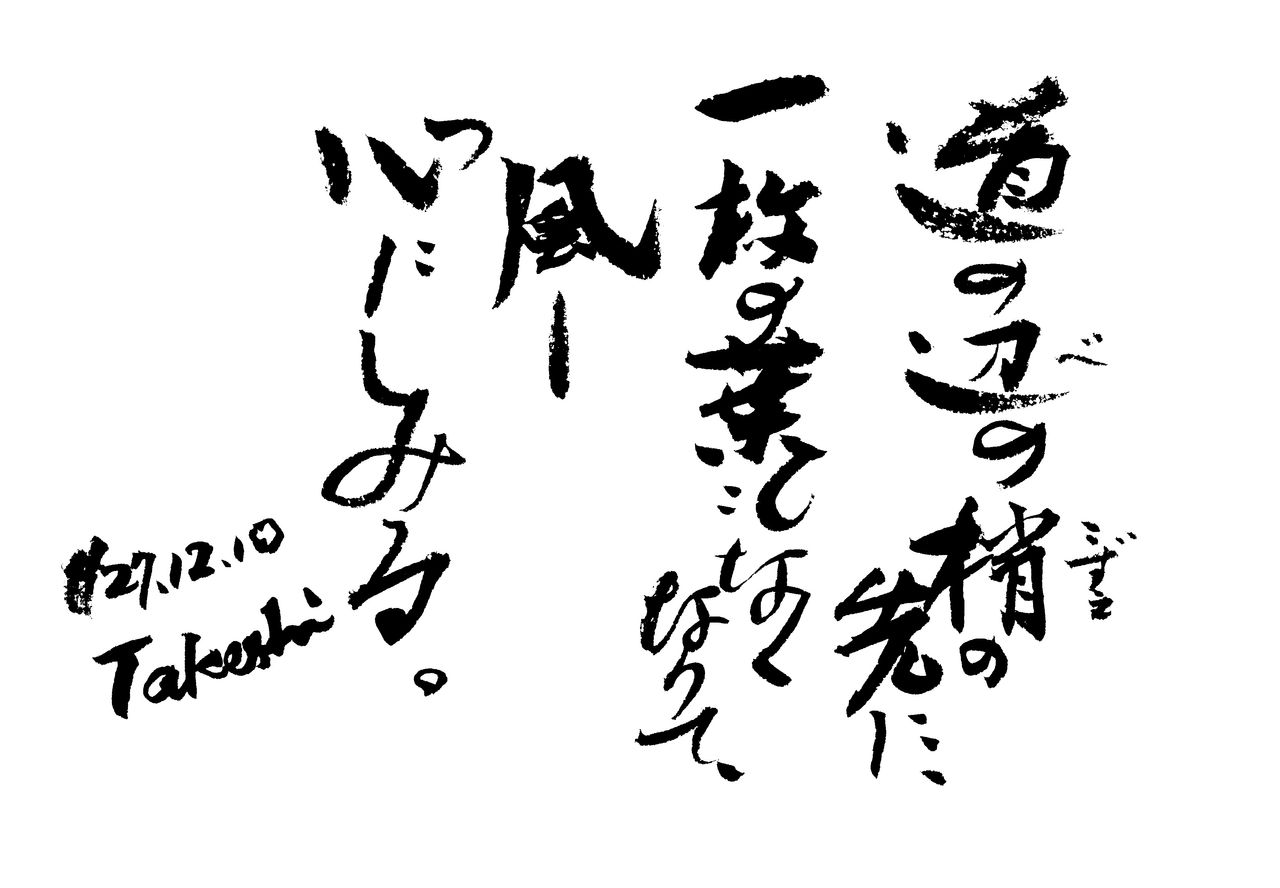 道の辺の梢の
べ
こずえ
先に
一枚の葉もなく
なりて、
風ー
心にしみる。
H27.12.10
Takeshi